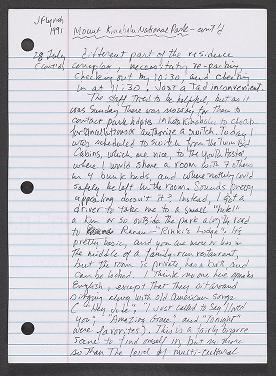 JFLynch
1991
Mount Kinabalu National Park - cont'd
28 July
(cont'd)
different part of the residence
complex, necessitating re-packing,
checking out by 10:30, and checking
in at 11:30. Just a tad inconvenient.
The staff tried to be helpful, but as it
was Sunday there was no way for them to
contact park hdqtrs in Kota Kinabalu to
or authorize a switch. Today I
was scheduled to switch from the Twin Bed
Cabins, which are nice, to the Youth Hostel,
where I would share a room with 7 others
in 4 bunk beds, and where nothing could
safely be left in the room. Sounds pretty
appealing doesn't it? Instead, I got a
driver to take me to a small "hotel"
a km or so outside the park on the road
to Ranau - "Rinki's Lodge". It's
pretty basic, and you are more or less in
the middle of a family-run restaurant,
but the room is private, has a bath, and
can be locked. I think no one here speaks
English, except that they sit around
singing along with old American songs
("Hey Jude", "I just called to say I loved
you", "Amazing Grace", and "Tonight"
were favorites). This is a fairly bizarre
scene to find oneself in, but no more
so than the level of multi-cultural